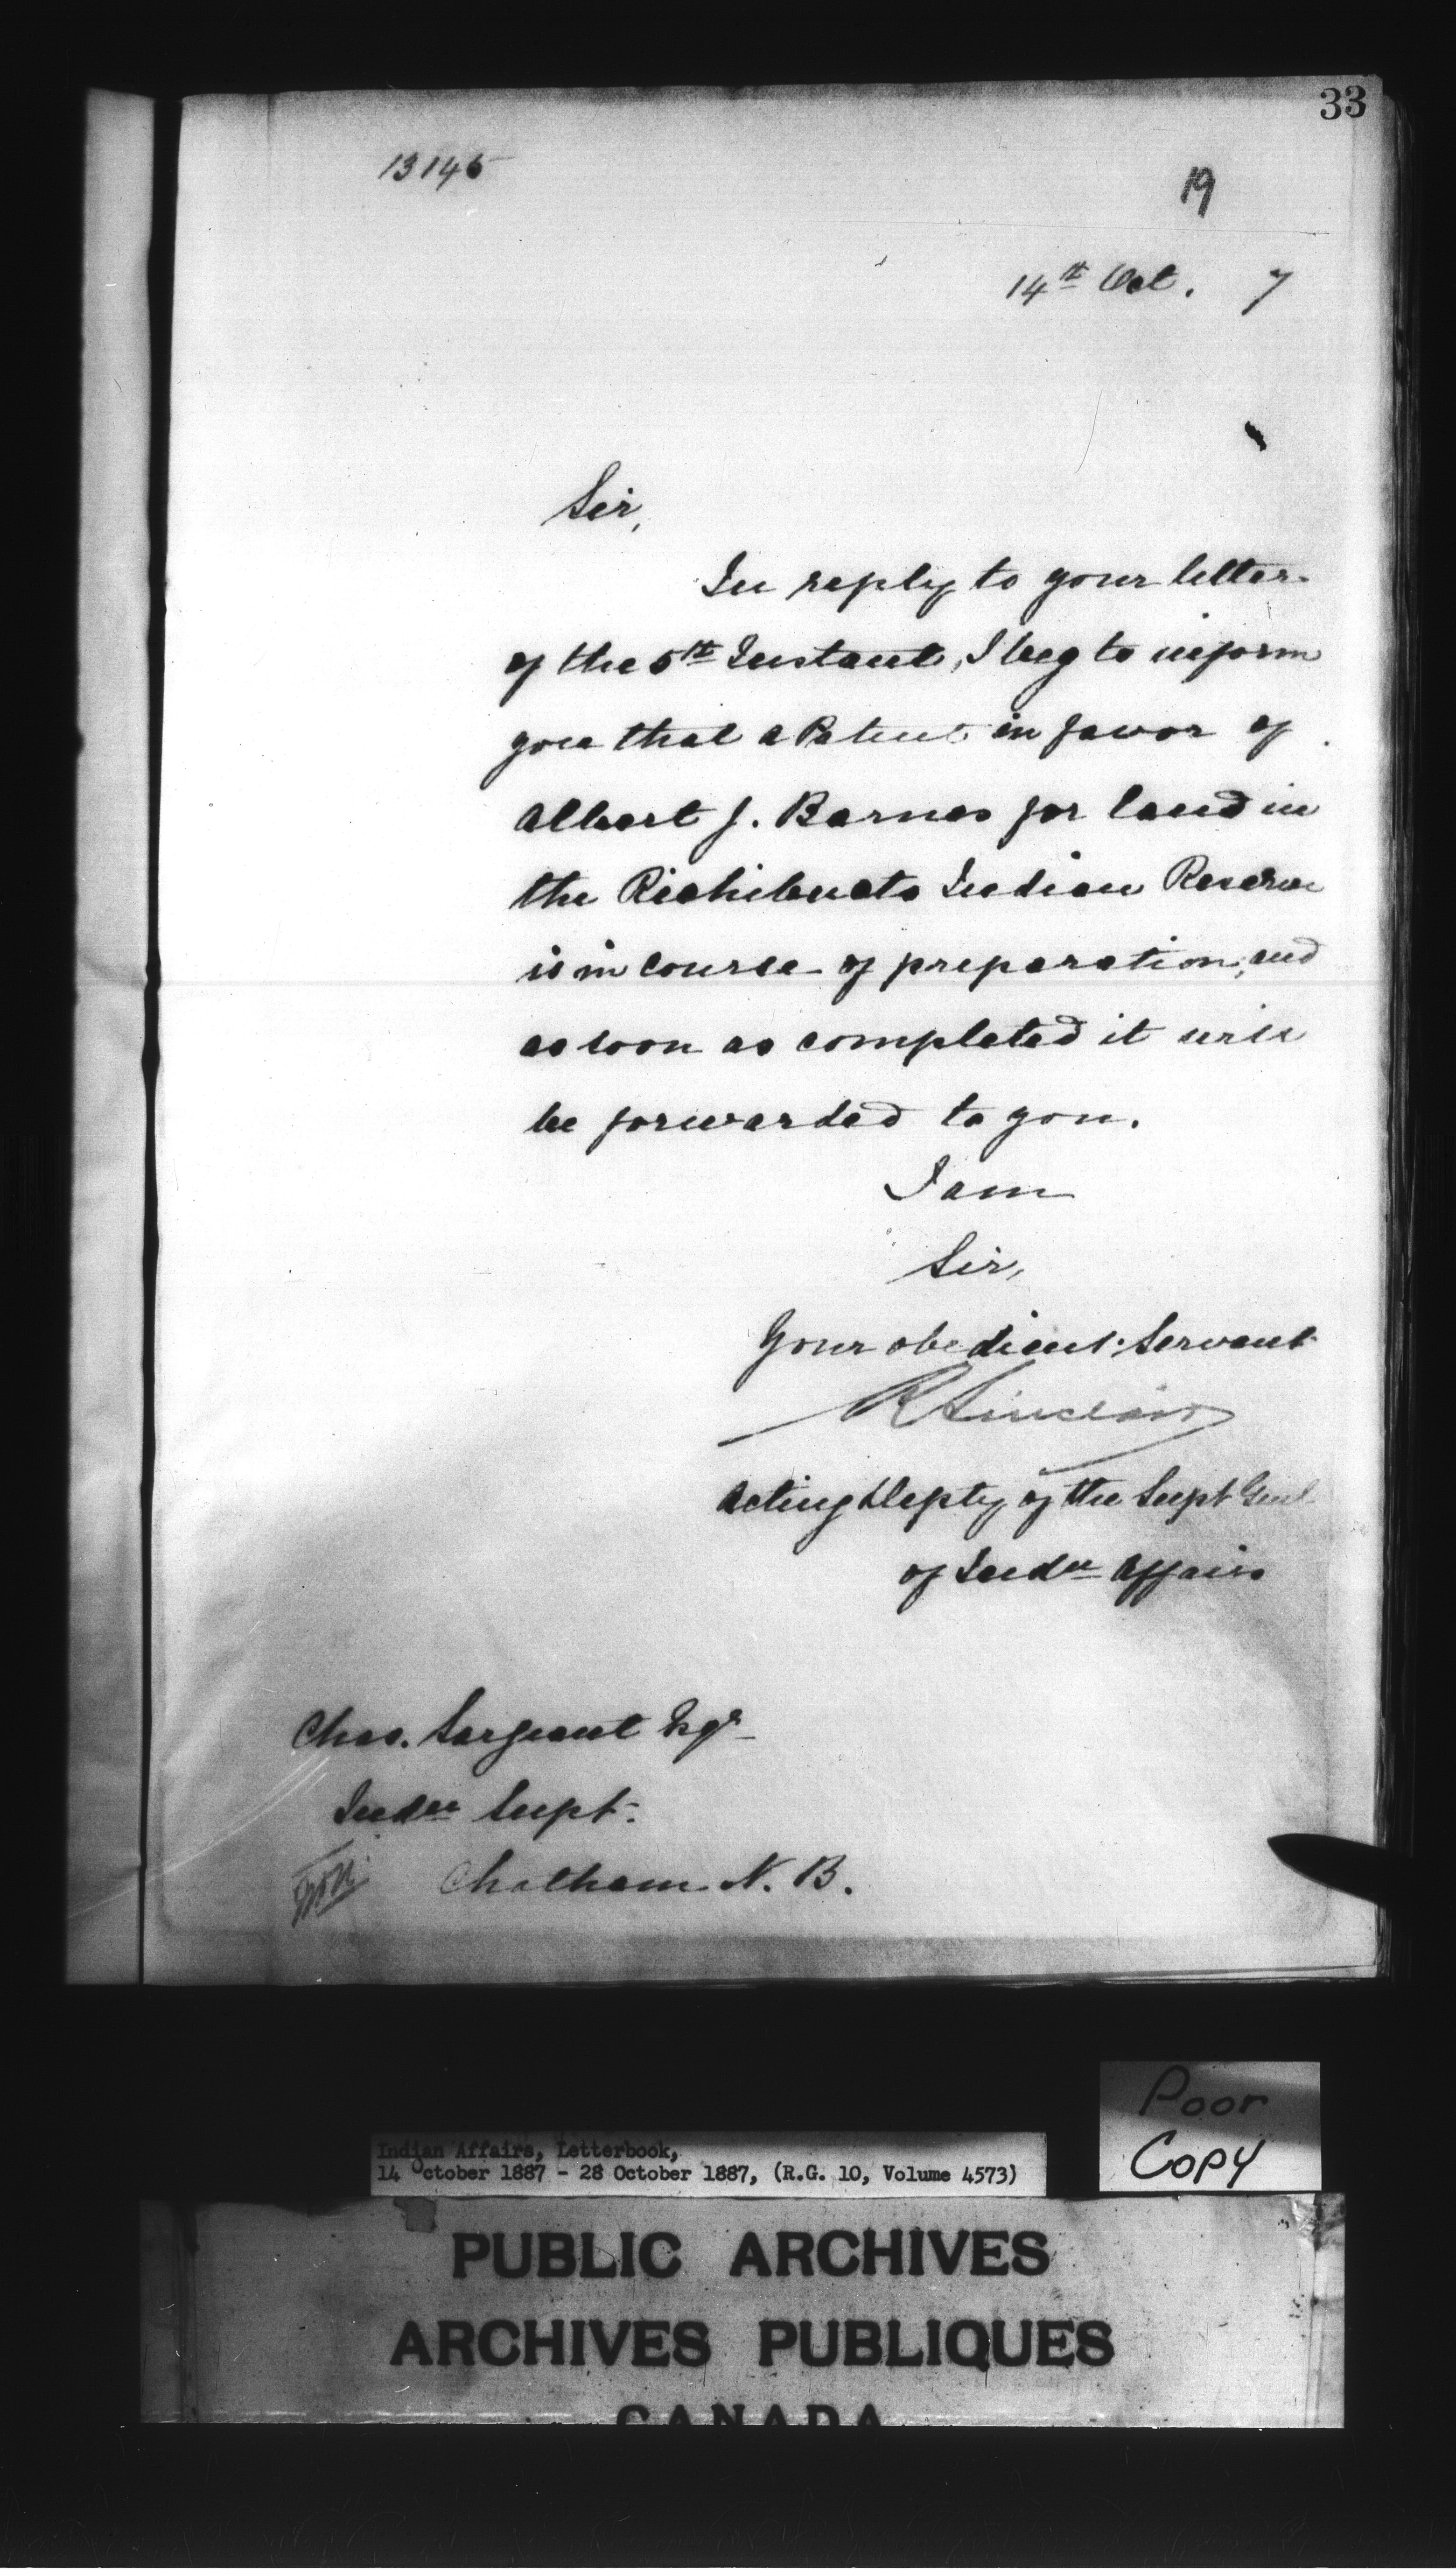 33
13145
19
14th Oct. 7
Sir,
In reply to your letter
of the 5th Instant, I beg to inform
you that a Patent in favor of
Albert J. Barnes for land in
the Richibucto Indian Reserve
is in course of preparation, and
as soon as completed it will
be forwarded to you.
I am
Sir,
Your obedient Servant
R Sinclair
Acting Depty of the Supt Genl
of Indn Affairs
Chas. Sargeant Esqr
Indn Supt.
Chatham N. B.
Poor
Copy
Indian Affairs, Letterbook,
14 October 1887 - 28 October 1887, (R.G. 10, Volume 4573)
PUBLIC ARCHIVES
ARCHIVES PUBLIQUES
CANADA